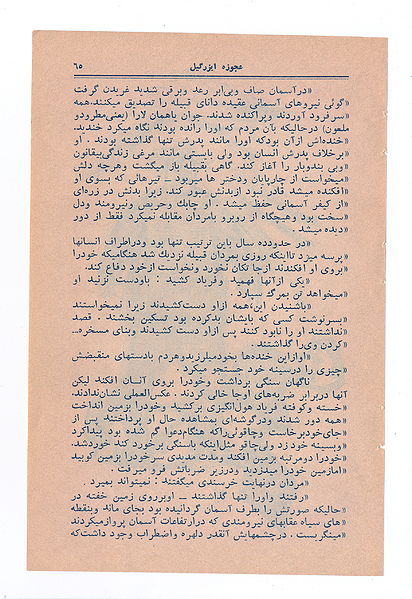 عجوزه ایزرگیل ۶۵
«در آسمان صاف وبی‌ابر رعد وبرقی شدید غریدن گرفت
«گوئی نیروهای آسمانی عقیده دانای قبیله را تصدیق میکنند.همه
«سرفرود آوردند وپراکنده شدند. جوان یاهمان لارا (یعنی‌مطرودو
ملعون) درحالیکه بآن مردم که اورا رانده بودند نگاه میکرد خندید.
«خنده‌اش ازآن بودکه اورا مانند پدرش تنها گذاشته بودند . او
«برخلاف پدرش انسان بود ولی بایستی مانند مرغی زندگی‌بیقانون
«وبی بندوبار را آغاز کند. گاهی بقبیله باز میگشت وهرچه دلش
«میخواست از چارپایان ودختر ها میربود – تیرهائی که بسوی او
«افکنده میشد قادر نبود ازبدنش عبور کند. زیرا بدنش در زره‌ای
«از کیفر آسمانی حفظ میشد . او چابك وحریص ونیرومند ودل
«سخت بود وهیچگاه از روبرو بامردان مقابله نمیکرد فقط از دور
«دیده میشد .
«در حدودده سال باین ترتیب تنها بود ودراطراف انسانها
«پرسه میزد تااینکه روزی بمردان قبیله نزدیك شد هنگامیکه خودرا
«بروی او افکندند ازجا تکان نخورد ونخواست ازخود دفاع کند.
«یکی ازآنها فهمید وفریاد کشید : باودست نزنید او
«میخواهد تن بمرگ سپارد .
«باشنیدن این‌همه ازاو دست‌کشیدند زیرا نمیخواستند
«سرنوشت کسی که بایشان بدکرده بود تسکین بخشند . قصد
نداشتند او را نابود کنند پس ازاو دست کشیدند وبنای مسخره...
«کردن وی‌را گذاشتند .
«اوازاین خنده‌ها بخودمیلرزیدوهردم بادستهای منقبضش
«چیزی را درسینه خود جستجو میکرد .
ناگهان سنگی برداشت وخودرا بروی آنسان افکند لیکن
آنها دربرابر ضربه‌های اوجا خالی کردند . عکس‌العملی نشان‌ندادند.
«خسته وکوفته فریاد هول‌انگیزی برکشید وخودرا بزمین انداخت
«همه دور شدند ودرگوشه‌ای بمشاهده حال او پرداختند پس از
«جای‌خودبرخاست وچاقوئی‌راکه هنگام‌دعوا گم شده بود پیداکرد
«وبسینه خودزد ولی‌چاقو مثل‌اینکه باسنگی برخورد کند خوردشد.
«خودرا دومرتبه بزمین افکند ومدت مدیدی سرخودرا بزمین کوبید
«امازمین خودرا میدزدید ودرزیر ضرباتش فرو میرفت .
«مردان درنهایت خرسندی میگفتند : نمیتواند بمیرد .
«رفتند واورا تنها گذاشتند – اوبرروی زمین خفته در
«حالیکه صورتش را بطرف آسمان گردانیده بود بجای ماند وبنقطه
«های سیاه عقابهای نیرومندی که درارتفاعات آسمان پروازمیکردند
«مینگریست . درچشمهایش آنقدر دلهره واضطراب وجود داشت‌که